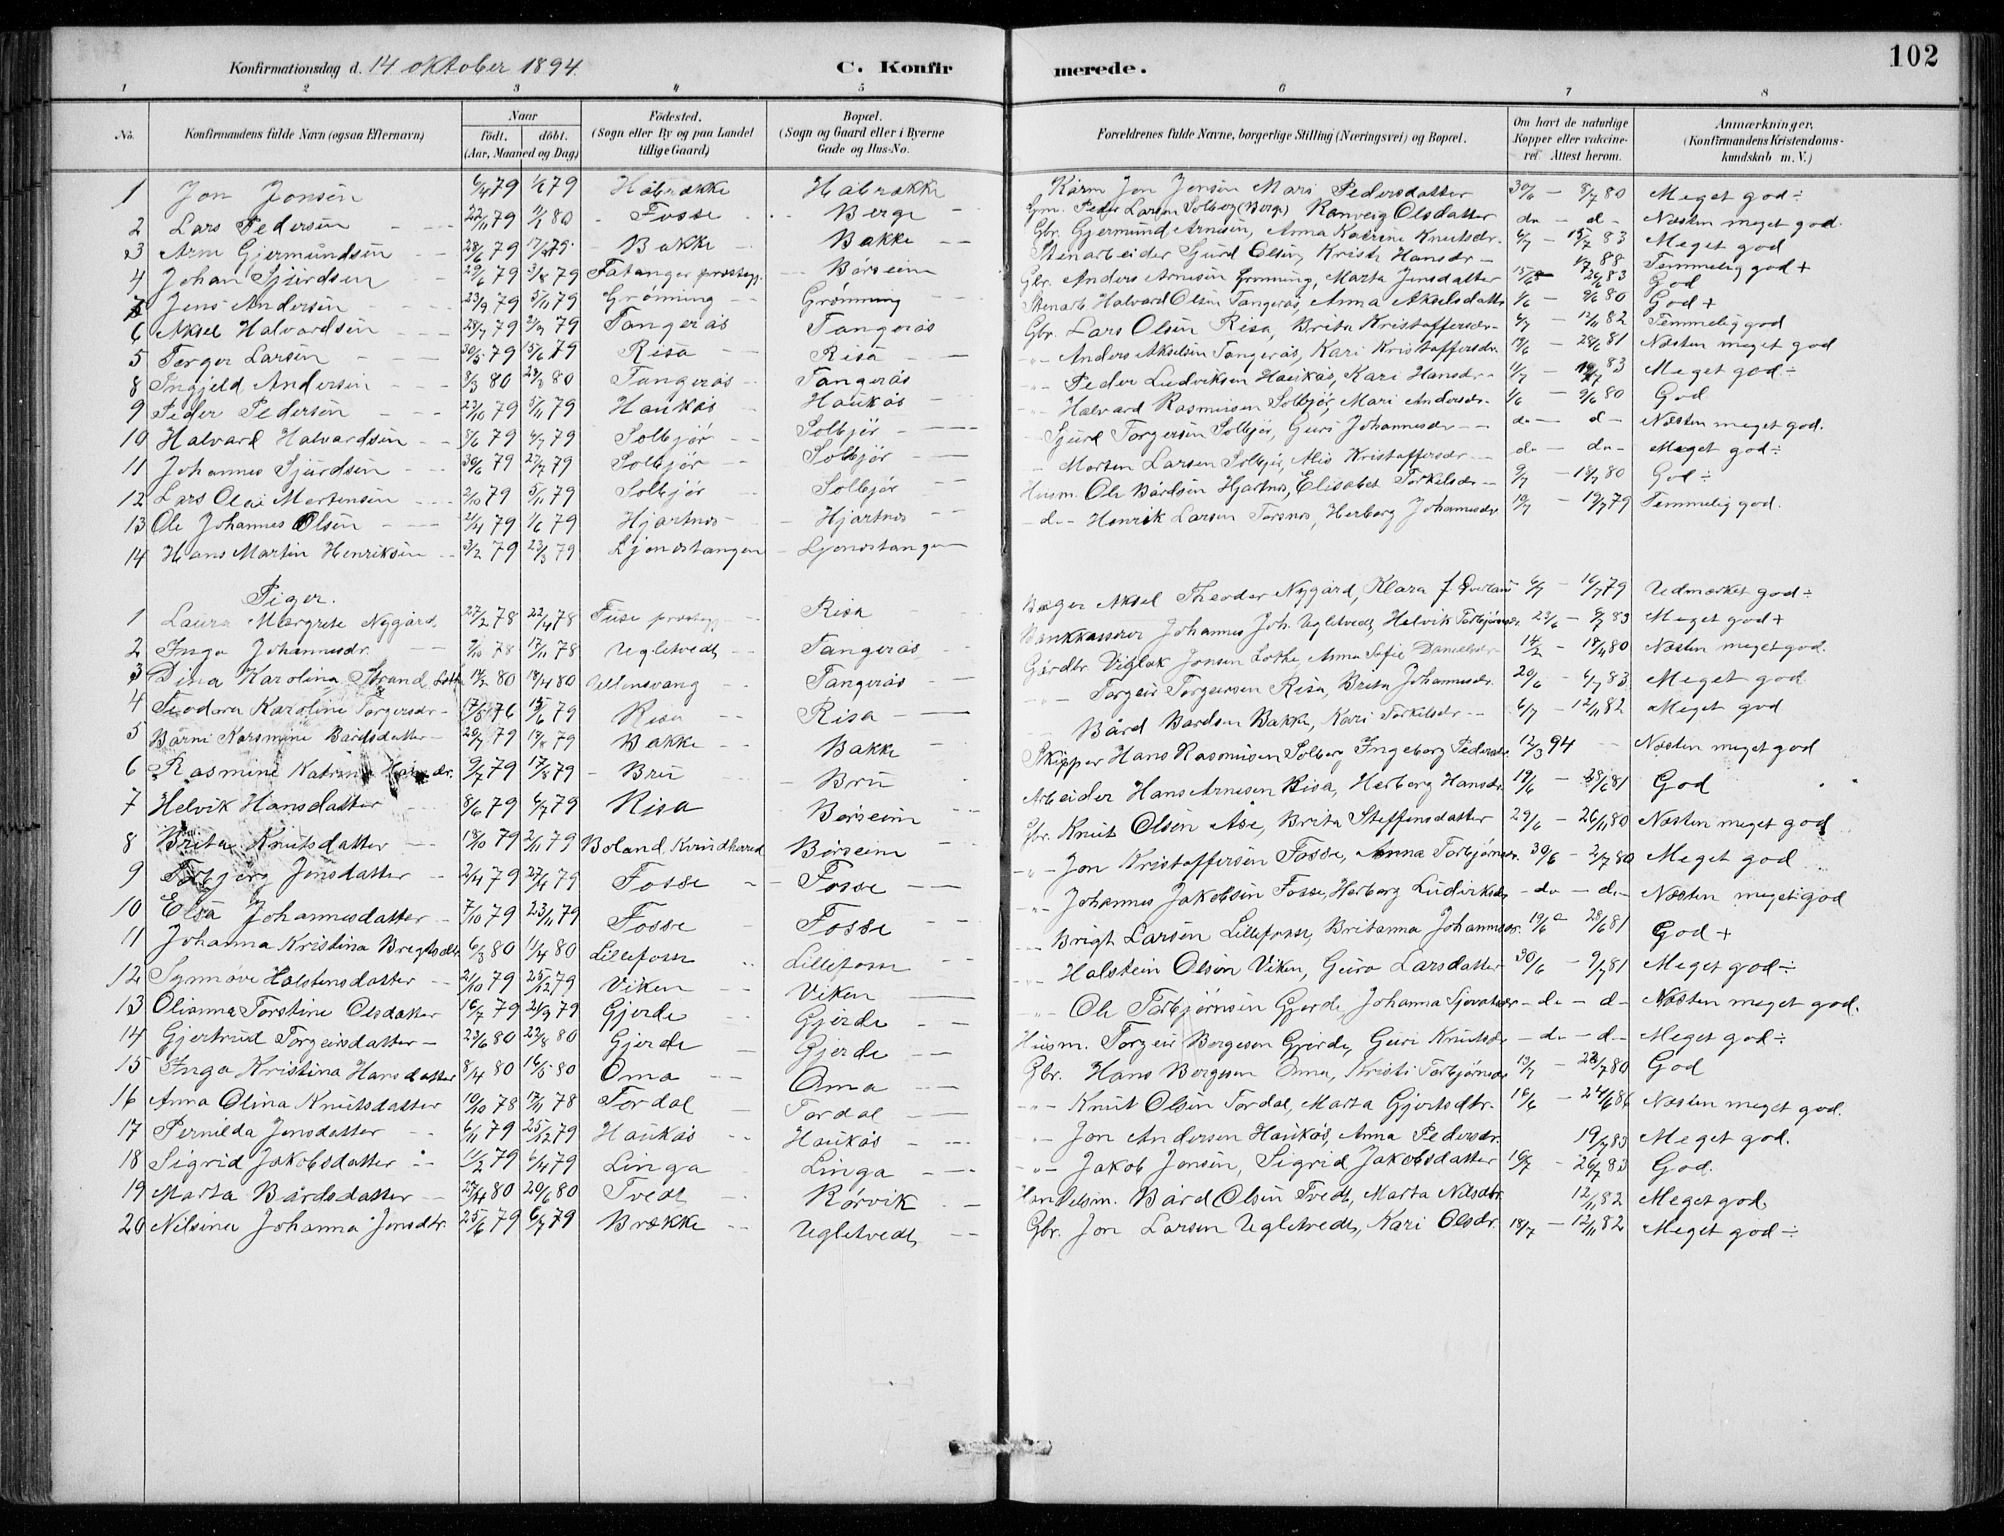 102
Konfirmationsdag d. 14 oktober 1894. C. Konfirmerede.
1 2 3 4 5 6 7 8
No. Konfirmandens fulde Navn (ogsaa Efternavn) Naar født. døbt. (Aar, Maaned og Dag) Fødested. (Sogn eller By og paa Landet tillige Gaard) Bopæl. (Sogn og Gaard eller i Byerne Gade og Hus-No. Forældrenes fulde Navne, borgerlige Stilling (Næringsvei) og Bopæl. Om havt de naturlige Kopper eller vakcineret Attest herom. Anmærkninger. (Konfirmandens Kristendomskundskab m. V.)
1 Jon Jonsen 6/4 79 79 Håbrække Håbrække Jon Jensen Mari Pedersdatter 30/6 - 8/7 80 Meget god ÷
2 Lars Pedersen 22/11 79 1/1 80 Fosse Berge Gm. Peder Larsen Solberg (Berge) Ranveig Olsdatter do - d - Næsten meget god.
3 Arne Gjermundsen 28/6 79 79 Bakke Bakke Gbr. Gjermund Arnesen, Anna Katrine Knutsdr. 6/7 - 15/7 83 Meget god
4 Johan Sjurdsen 29/6 79 3/8 79 Fatanger præstegj. Børseim Stenarbeider Sjurd Olsen, Kristi Hansdr - 88 Temmelig god +
Jens Andersen 23/9 79 5/11 79 Grønning Grønning Gbr. Anders Arnesen Grønning, Marta Jensdatter 83 God
6 Aksel Halvardsen 28/7 79 79 Tangerås Tangerås Stenarb Halvard Olsen Tangerås, Anna Akselsdatter 1/6 - 9/6 80 God +
5 Torger Larsen 30/5 79 15/6 79 Risa Risa Gbr. Lars Olsen Risa, Brita Kristoffersdr - 6/7 - 12/11 82 Temmelig god
8 Ingjeld Andersen 8/3 80 80 Tangerås Tangerås " Anders Akselsen Tangerås, Kari Kristoffersdr 19/6 - 28/6 81 Næsten meget god
9 Peder Pedersen 23/10 79 5/11 79 Haukås Haukås " Peder Ludviksen Haukås, Kari Hansdr - 83 Meget god ÷
10 Halvard Halvardsen 8/6 79 6/7 79 Solbjør Solbjør " Halvard Rasmusen Solbjør, Mari Andersdr - 1/6 - 9/6 80 God
11 Johannes Sjurdsen 30/6 79 27/7 79 Solbjør Solbjør " Sjurd Torgersen Solbjør, Guri Johannesdr - do - d - Næsten meget god.
12 Lars Olai Mortensen 2/10 79 5/11 79 Solbjør Solbjør " Morten Larsen Solbjør, Kristoffersdr - do - do - Meget god ÷
13 Ole Johannes Olsen 21/4 79 1/6 79 Hjartnes Hjartnes Husm. Ole Bårdsen Hjartnes, Elisabet Torkelsdr - 9/7 - 18/7 80 God ÷
14 Hans Martin Henriksen 3/2 79 23/3 79 Ljonestangen Ljonestangen - d - Henrik Larsen Torsnes, Herborg Johannesdr 19/7 - 19/7 79 Temmelig god.
Piger.
1 Laura Margrete Nygård 27/2 78 22/4 78 Fuse præstegj. Risa Bager Aksel Theodor Nygård, Klara f. 6/7 - 16/7 79 Udmærket god ÷
2 Inga Johannesdr. 78 17/11 78 Ugletvedt Tangerås Bankkasserer Johannes Joh. Ugletvedt, Helvik Torbjørnsdr. 23/6 - 8/7 83 Meget god +
3 Dina Karolina Strand Lothe 14/2 80 18/4 80 Ullensvang Tangerås Gårdbr. Viglek Jonsen Lothe, Anna Sofie Danielsdr - 14/2 - 18/4 80 Næsten meget god.
4 Teodora Karoline Torgersdr - 17/5 76 15/6 79 Risa Risa " Torgeir Torgeirsen Risa, Brita Johannesdr. 20/6 - 6/7 83 Meget god
5 Barni Rasmine Bårdsdatter - 20/7 79 79 Bakke Bakke " Bård Bårdsen Bakke, Kari Torkelsdr - 6/7 - 12/11 82 Meget god
6 Rasmine Katrine dr. 9/7 79 17/8 79 Bru Bru Skipper Hans Rasmusen Solberg Ingeborg Pedersdr. 12/3 94 Næsten meget god
7 Helvik Hansdatter 8/6 79 6/7 79 Risa Børseim Arbeider Hans Arnesen Risa, Herborg Hansdr. 19/6 - 28/6 81 God
8 Brita Knutsdatter 18/10 79 2/11 79 Boland Kvindherred Børseim Gbr. Knut Olsen Åse, Brita Steffensdatter 29/6 - 26/11 80 Næsten meget god
9 Torbjørg Jonsdatter 2/4 79 27/4 79 Fosse Fosse " Jon Kristoffersen Fosse, Anna Torbjørnsdr. 30/6 - 2/7 80 Meget god
10 Elsa Johannesdatter 7/10 79 23/11 79 Fosse Fosse " Johannes Jakobsen Fosse, Herborg Ludviksdr - do - d - Næsten meget god
11 Johanna Kristina Brigtsdtr. 6/3 80 11/4 80 Lillefosse Lillefosse " Brigt Larsen Lillefosse, Britanna Johannesdr. 19/6 - 28/6 81 God +
12 Synnøve Halstensdatter 2/10 79 25/12 79 Viken Viken " Halstein Olsen Viken, Guro Larsdatter 30/6 - 9/7 81 Meget god ÷
13 Olianna Torstine Olsdatter 16/7 79 21/9 79 Gjerde Gjerde " Ole Torbjørnsen Gjerde, Johanna - do - d - Næsten meget god.
14 Gjertrud Torgeirsdatter - 23/6 80 22/8 80 Gjerde Gjerde Husm. Torgeir Borgesen Gjerde, Guri Knutsdr - do - d - Meget god ÷
15 Inga Kristina Hansdatter 8/4 80 16/5 80 Oma Oma Gbr. Hans Borgesen Oma, Kristi Torbjørnsdr 13/7 - 80 God
16 Anna Olina Knutsdatter 19/10 78 17/11 78 Tordal Tordal " Knut Olsen Tordal, Marta Gjertsdtr. 16/6 - 24/6 86 Næsten meget god.
17 Pernilda Jonsdatter 6/11 79 25/12 79 Haukås Haukås " Jon Andersen Haukås, Anna Pedersdr. 19/7 83 Meget god.
18 Sigrid Jakobsdatter 11/2 79 6/4 79 Linga Linga " Jakob Jonsen, Sigrid Jakobsdatter 16/7 - 26/7 83 God.
19 Marta Bårdsdatter 80 20/6 80 Tvedt Rørvik Bård Olsen Tvedt, Marta Nilsdtr. 12/11 82 Meget god
20 Nilsina Johanna Jonsdtr. 25/6 79 6/7 79 Brække Ugletvedt Gbr. Jon Larsen Ugletvedt, Kari Olsdr. 18/7 - 12/11 82 Meget god ÷